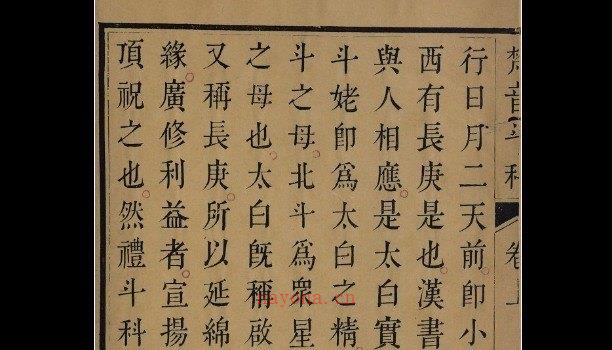 梵音斗科
卷上
行日月二天前即小
西有長庚是也漢書
與人相應是太白實
斗姥即為太白之精
斗之母北斗為眾星
之母也太白既稱啟
又稱長庚所以延綿
緣廣修利益者宣揚
頂祝之也然禮斗科